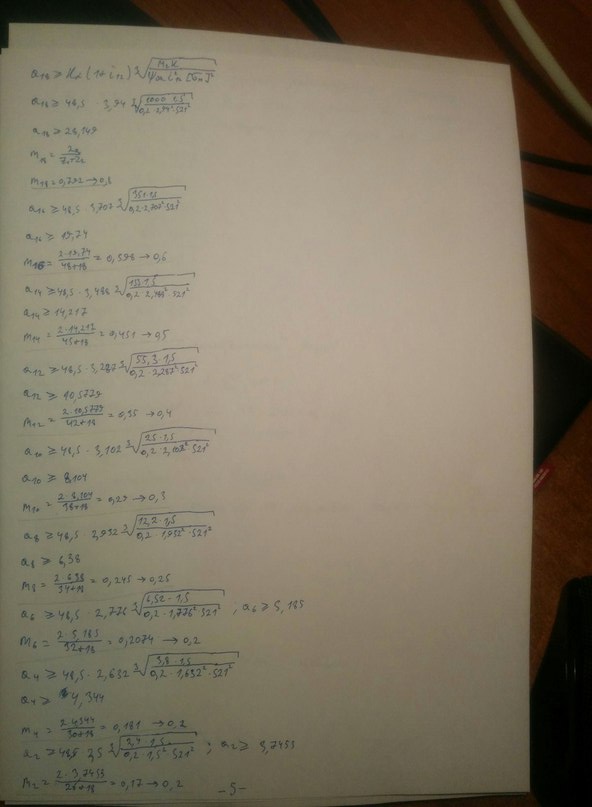 a₁₈ ≥ K_α (1+i₁₂) ³√(M₂K / Ψ_ba i₁₂² [σ_н]²)
a₁₈ ≥ 48,5 · 3,94 ³√(1000·1,5 / 0,2·2,94²·521²)
a₁₈ ≥ 28,149
m₁₈ = 2a / z₁+z₂
m₁₈ = 0,792 → 0,8
a₁₆ ≥ 48,5 · 3,707 ³√(351·1,5 / 0,2·2,707²·521²)
a₁₆ ≥ 19,74
m₁₆ = 2·19,74 / 48+18 = 0,598 → 0,6
a₁₄ ≥ 48,5 · 3,488 ³√(133·1,5 / 0,2·2,488²·521²)
a₁₄ ≥ 14,217
m₁₄ = 2·14,217 / 45+18 = 0,451 → 0,5
a₁₂ ≥ 48,5 · 3,287 ³√(55,3·1,5 / 0,2·2,287²·521²)
a₁₂ ≥ 10,5779
m₁₂ = 2·10,5779 / 42+18 = 0,35 → 0,4
a₁₀ ≥ 48,5 · 3,102 ³√(25·1,5 / 0,2·2,102²·521²)
a₁₀ ≥ 8,104
m₁₀ = 2·8,104 / 38+18 = 0,29 → 0,3
a₈ ≥ 48,5 · 2,932 ³√(12,2·1,5 / 0,2·1,932²·521²)
a₈ ≥ 6,38
m₈ = 2·6,38 / 34+18 = 0,245 → 0,25
a₆ ≥ 48,5 · 2,776 ³√(6,52·1,5 / 0,2·1,776²·521²) , a₆ ≥ 5,185
m₆ = 2·5,185 / 32+18 = 0,2074 → 0,2
a₄ ≥ 48,5 · 2,632 ³√(3,8·1,5 / 0,2·1,632²·521²)
a₄ ≥ 4,344
m₄ = 2·4,344 / 30+18 = 0,181 → 0,2
a₂ ≥ 48,5 · 2,5 ³√(2,4·1,5 / 0,2·1,5²·521²) ; a₂ ≥ 3,7453
m₂ = 2·3,7453 / 26+18 = 0,17 → 0,2
-5-